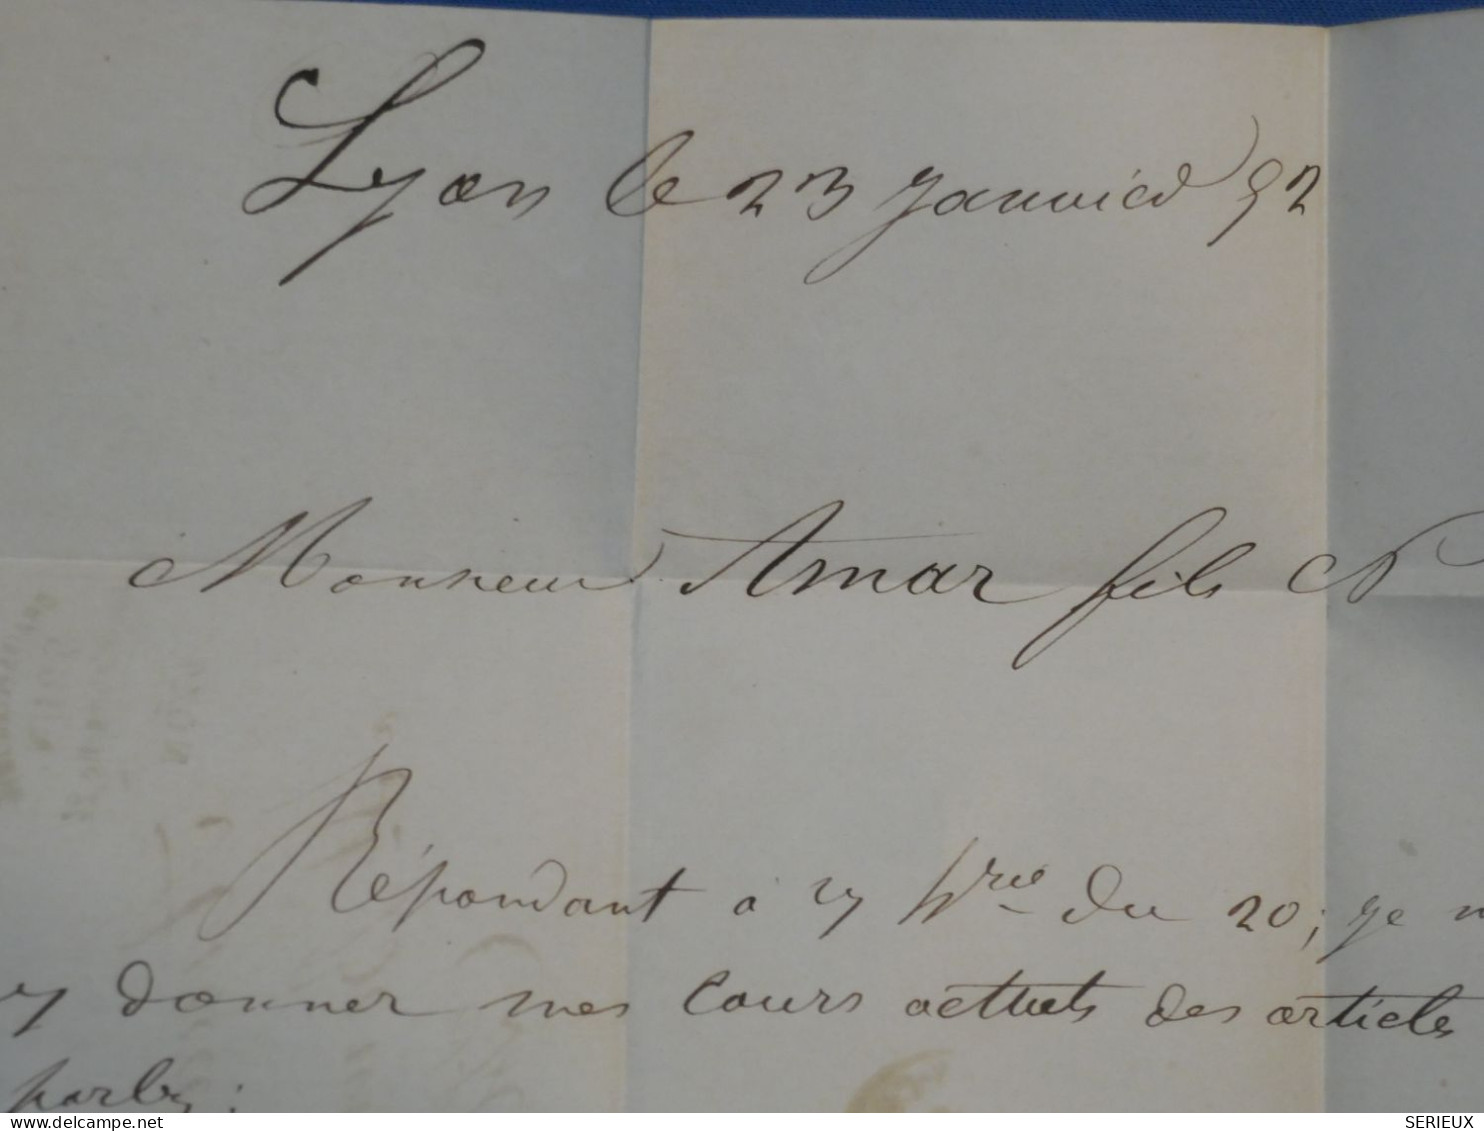 Lyon le 23 Janvier 52
Monsieur Amar fils N
Répondant à v/ h/re du 20; je
v/ donner mes cours actuels des articles
parlez:
SERIEUX